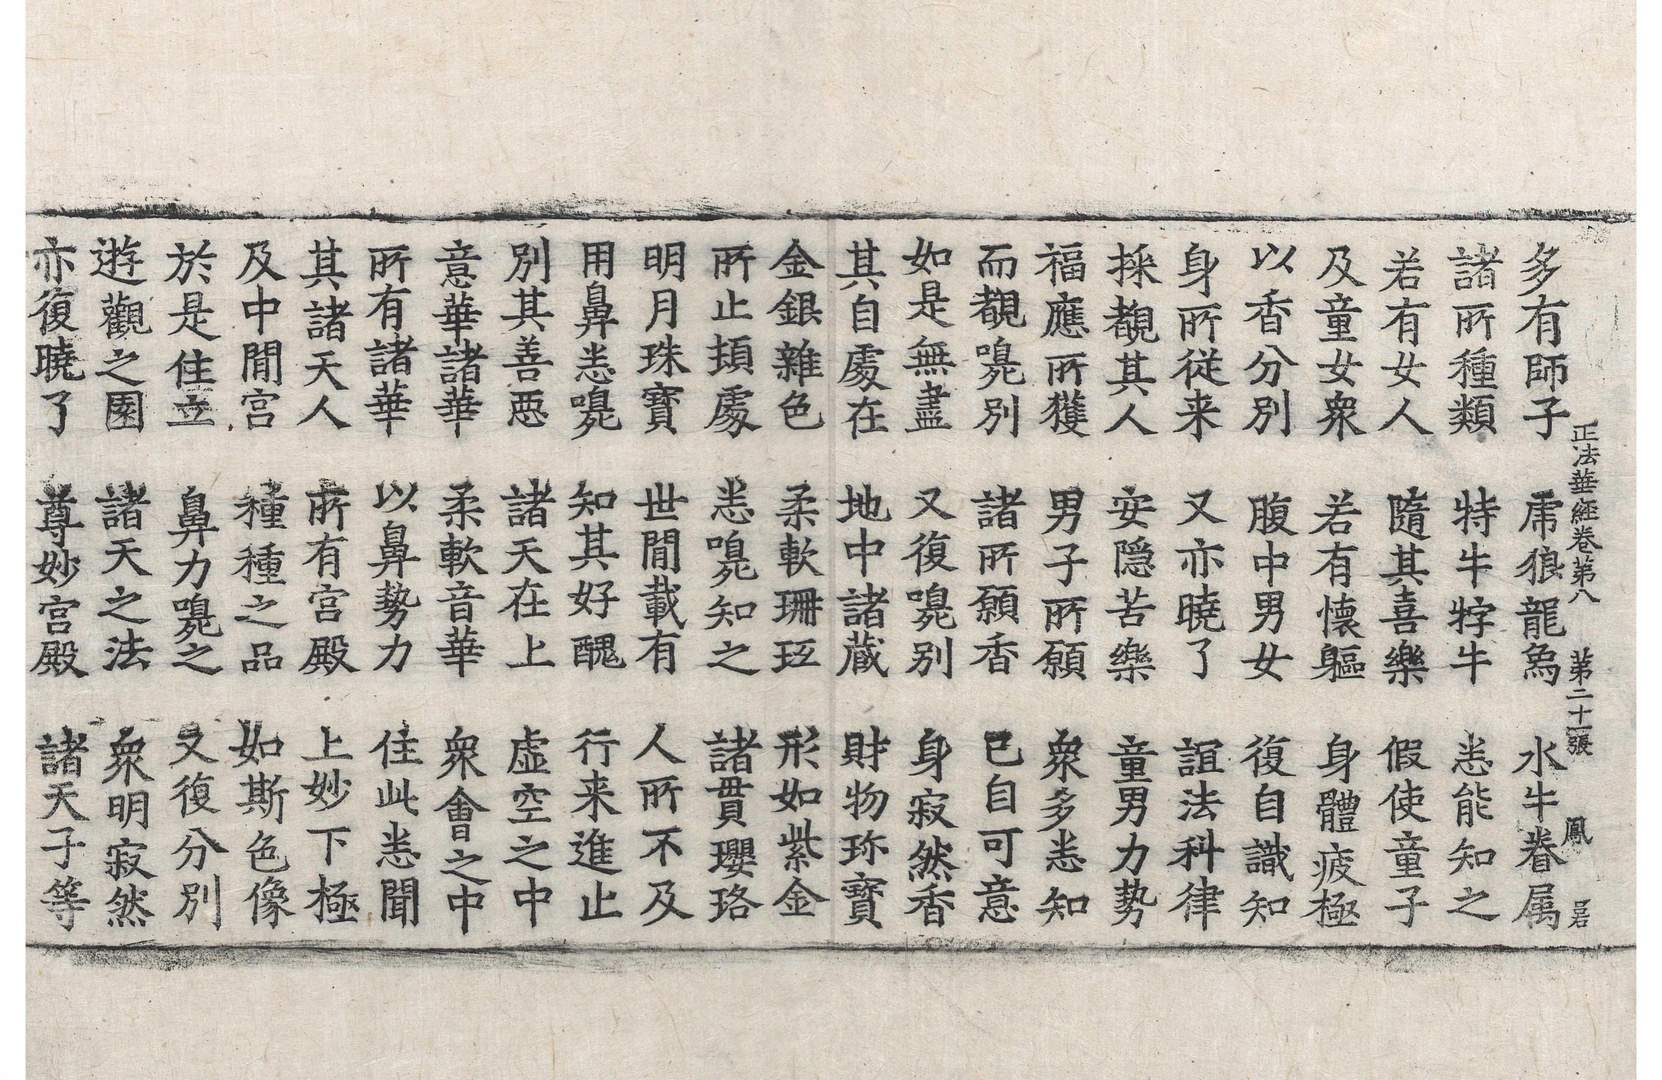 正法華經卷第八　第二十一張　鳳　召
多有師子　虎狼龍為　水牛眷属
諸所種類　特牛牸牛　悉能知之
若有女人　隨其喜樂　假使童子
及童女衆　若有懷軀　身體疲極
以香分別　腹中男女　復自識知
身所從来　又亦曉了　誼法科律
採覩其人　安隱苦樂　童男力勢
福應所獲　男子所願　衆多悉知
而覩嗅別　諸所願香　已自可意
如是無盡　又復嗅別　身寂然香
其自處在　地中諸藏　財物珎寶
金銀雜色　柔軟珊瑚　形如紫金
所止頓處　悉嗅知之　諸貫瓔珞
明月珠寶　世間載有　人所不及
用鼻悉嗅　知其好醜　行来進止
別其善惡　諸天在上　虚空之中
意華諸華　柔軟音華　衆會之中
所有諸華　以鼻勢力　住此悉聞
其諸天人　所有宮殿　上妙下極
及中間宮　種種之品　如斯色像
於是住立　鼻力嗅之　又復分別
遊觀之園　諸天之法　衆明寂然
亦復曉了　尊妙宮殿　諸天子等